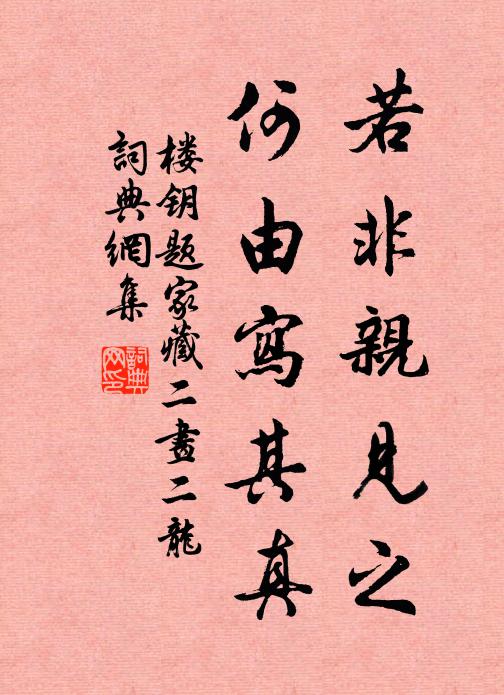 若非親見之
何由寫其真
楼钥题家藏二畫二龍
詞典網集
詞典網印